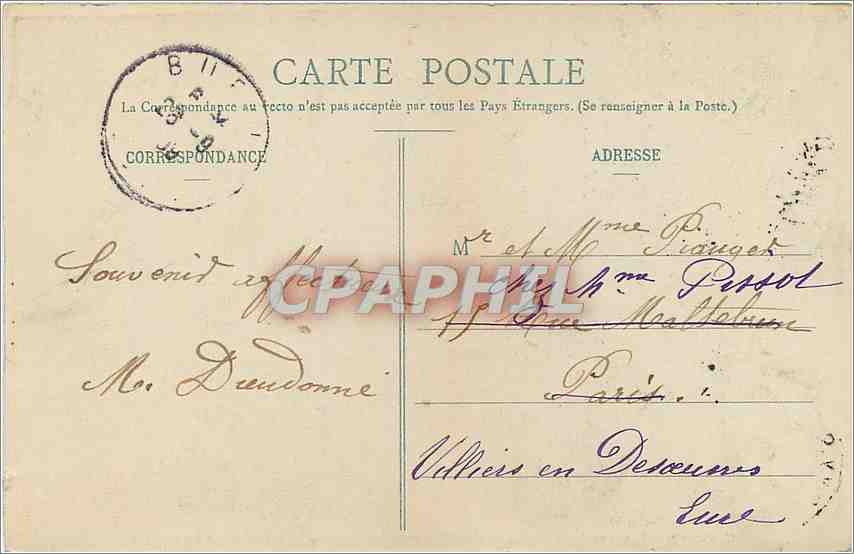 CARTE POSTALE
La Correspondance au recto n'est pas acceptée par tous les Pays Étrangers. (Se renseigner à la Poste.)
CORRESPONDANCE
Souvenir affectueux
M. Dieudonné
ADRESSE
Mr et Mme Pianget
chez Mme Pessot
15 Rue Maltebrun
Paris.
Villiers en Desoeuvres
Eure
CPAPHIL